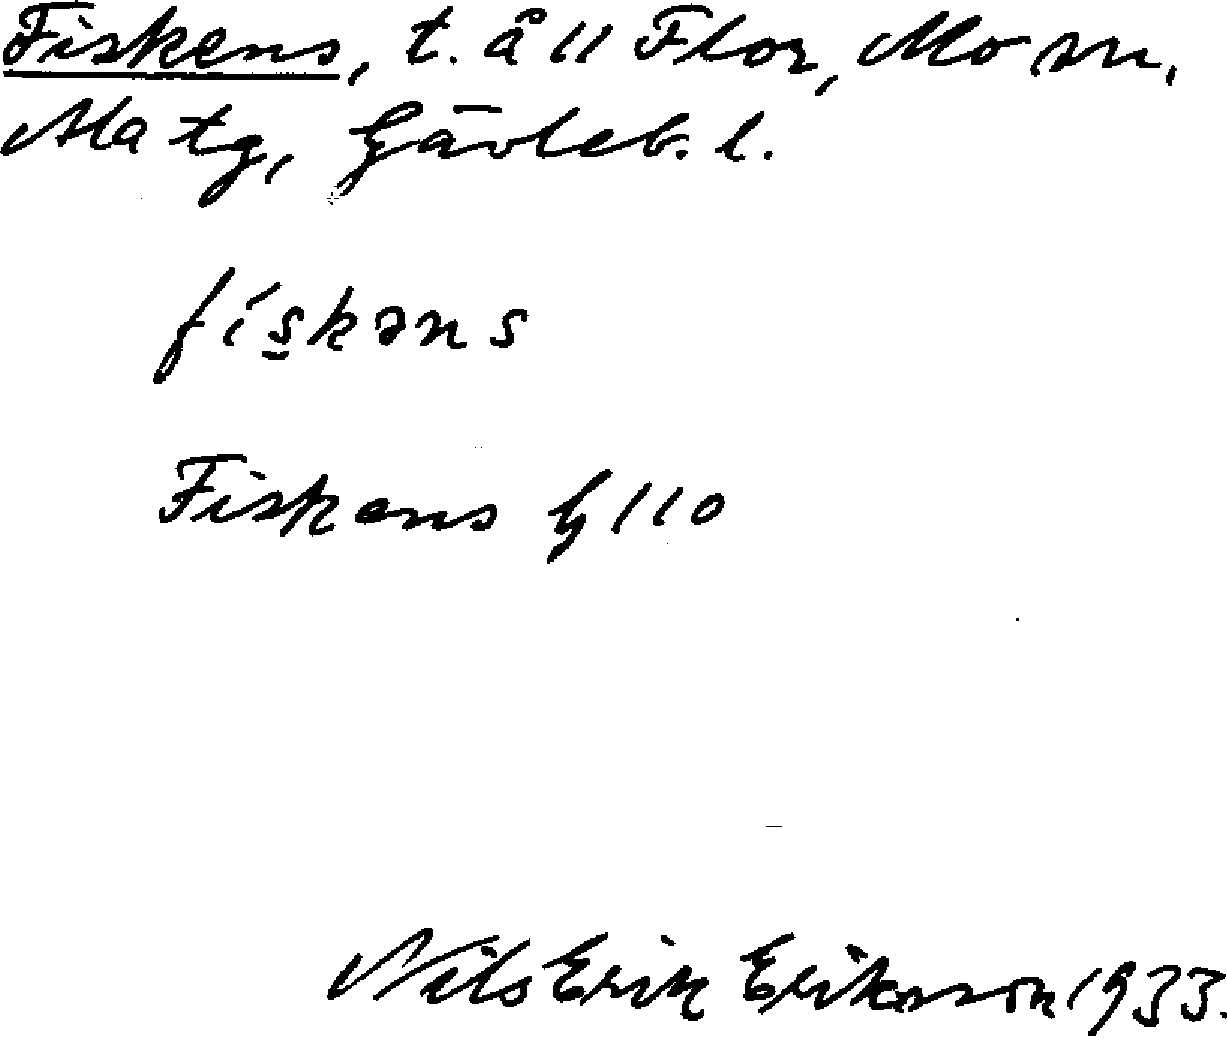 Fiskens, t. å 11 Flor, Mo sn,
Ala tg, Gävleb. l.
fiskəns
Fiskens G 110
Nils Erik Eriksson 1933.